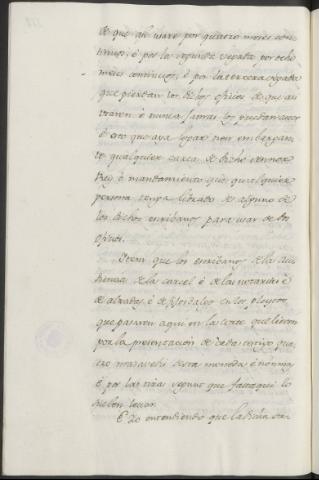 de que asi usare por quatro meses con-
tinuos, é por la segunda vegada por ocho
meses continuos, é por la tercera vegada
que pierdan los dichos oficios de que asi
usaren é nunca jamas los puedan aver
é esto que aya lugar non embargan-
te qualquier carta de dicho sennor
Rey é mandamiento que qualquiera
persona tenga librado de alguno de
los dichos escribanos para usar de los
oficios.
Item que los escribanos de la Au-
diencia de la carcel é de las notarias é
de alzadas, é de fijosdalgo en los pleytos
que pasaren aqui en la corte que lieven
por la presentacion de cada testigo qua-
tro maravedis desta moneda é non mas
é por las tiras segunt que fasta aqui lo
suelen levar.
E Yo entendiendo que la dicha or-